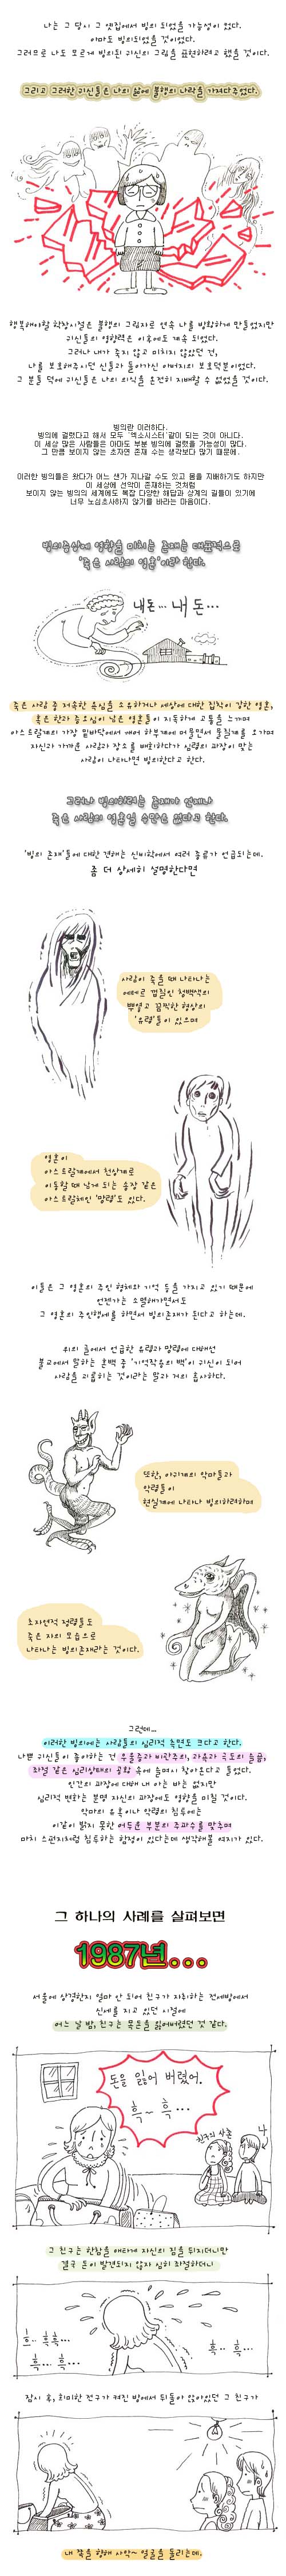 나는 그 당시 그 옛집에서 빙의 되었을 가능성이 컸다.
아마도 빙의되었을 것이었다.
그러므로 나도 모르게 빙의된 귀신의 그림을 표현하려고 했을 것이다.
그리고 그러한 귀신들은 나의 삶에 불행의 나락을 가져다주었다.
행복해야할 학창시절은 불행의 그림자로 연속 나를 방황하게 만들었지만
귀신들의 영향력은 이후에도 계속 되었다.
그러나 내가 죽지 않고 미치지 않았던 건,
나를 보호해주시던 신들과 돌아가신 아버지의 보호덕분이었다.
그 분들 덕에 귀신들은 나의 의식을 온전히 지배할 수 없었을 것이다.
빙의란 이러하다.
빙의에 걸렸다고 해서 모두 '엑소시스터'같이 되는 것이 아니다.
이 세상 많은 사람들은 아마도 부분 빙의에 걸렸을 가능성이 많다.
그 만큼 보이지 않는 초자연 존재 수는 생각보다 많기 때문에.
이러한 빙의들은 왔다가 어느 샌가 지나갈 수도 있고 몸을 지배하기도 하지만
이 세상에 선악이 존재하는 것처럼
보이지 않는 빙의의 세계에도 복잡 다양한 해답과 상계의 길들이 있기에
너무 노심초사하지 않기를 바라는 마음이다.
빙의증상에 영향을 미치는 존재는 대표적으로
'죽은 사람의 영혼'이라 한다.
내돈··· 내 돈···
죽은 사람 중 저속한 욕심을 소유하거나 세상에 대한 집착이 강한 영혼,
혹은 한과 증오심이 남은 영혼들이 지독하게 고통을 느끼며
아스트랄계의 가장 밑바닥에서 깨어 하부계에 머물면서 물질계를 오가며
자신과 가까운 사람과 장소를 배회하다가 심령의 파장이 맞는
사람이 나타나면 빙의한다고 한다.
그러나 빙의하려는 존재가 언제나
죽은 사람의 영혼일 수만은 없다고 한다.
'빙의 존재'들에 대한 견해는 신비학에서 여러 종류가 언급되는데.
좀 더 상세히 설명한다면
사람이 죽을 때 나타나는
에테르 껍질인 청백색의
뿌옇고 끔찍한 형상의
'유령'들이 있으며
영혼이
아스트랄계에서 천상계로
이동할 때 남게 되는 송장 같은
아스트랄체인 '망령'도 있다.
이들은 그 영혼의 주인 형체와 기억 등을 가지고 있기 때문에
언젠가는 소멸해가면서도
그 영혼의 주인행세를 하면서 빙의존재가 된다고 하는데.
위의 글에서 언급한 유령과 망령에 대해선
불교에서 말하는 혼백 중 '기억작용의 백'이 귀신이 되어
사람을 괴롭히는 것이라는 말과 거의 흡사하다.
또한, 아귀계의 악마들과
악령들이
현실계에 나타나 빙의하려하며
초자연적 정령들도
죽은 자의 모습으로
나타나는 빙의존재라는 것이다.
그런데...
이러한 빙의에는 사람들의 심리적 측면도 크다고 한다.
나쁜 귀신들이 좋아하는 건 우울증과 비관주의, 과욕과 극도의 슬픔,
좌절 같은 심리상태의 공황 속에 숨며시 찾아온다고 들었다.
인간의 파장에 대해 내 아는 바는 없지만
심리적 변화는 분명 자신의 파장에도 영향을 미칠 것이다.
악마의 유혹이나 악령의 침투에는
이같이 밝지 못한 어두운 부분의 주파수를 맞추며
마치 스펀지처럼 침투하는 함정이 있다는데 생각해볼 여지가 있다.
그 하나의 사례를 살펴보면
1987년...
서울에 상경한지 얼마 안 되어 친구가 자취하는 전세방에서
신세를 지고 있던 시절에
어느 날 밤, 친구는 목돈을 잃어버렸던 것 같다.
돈을 잃어 버렸어.
흑~ 흑···
친구의 사촌
나
그 친구는 한참을 애타게 자신의 짐을 뒤지더니만
결국 돈이 발견되지 않자 심히 좌절하더니
흐.. 흑흑...
흑... 흑...
흑.. 흑.
잠시 후, 희미한 전구가 켜진 방에서 뒤돌아 앉아있던 그 친구가
내 쪽을 향해 사악~ 얼굴을 돌리는데.